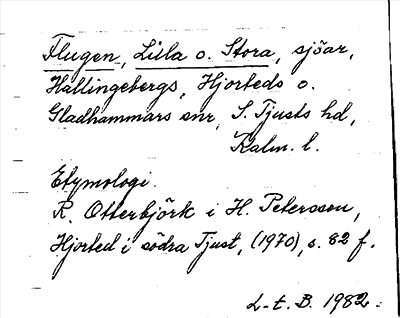 Flugen, Lilla o. Stora, sjöar,
Hallingebergs, Hjorteds o.
Gladhammars snr, S. Tjusts hd,
Kalm. l.
Etymologi.
R. Otterbjörk i H. Petersson,
Hjorted i södra Tjust, (1970), s. 82 f.
L-t. B. 1982.